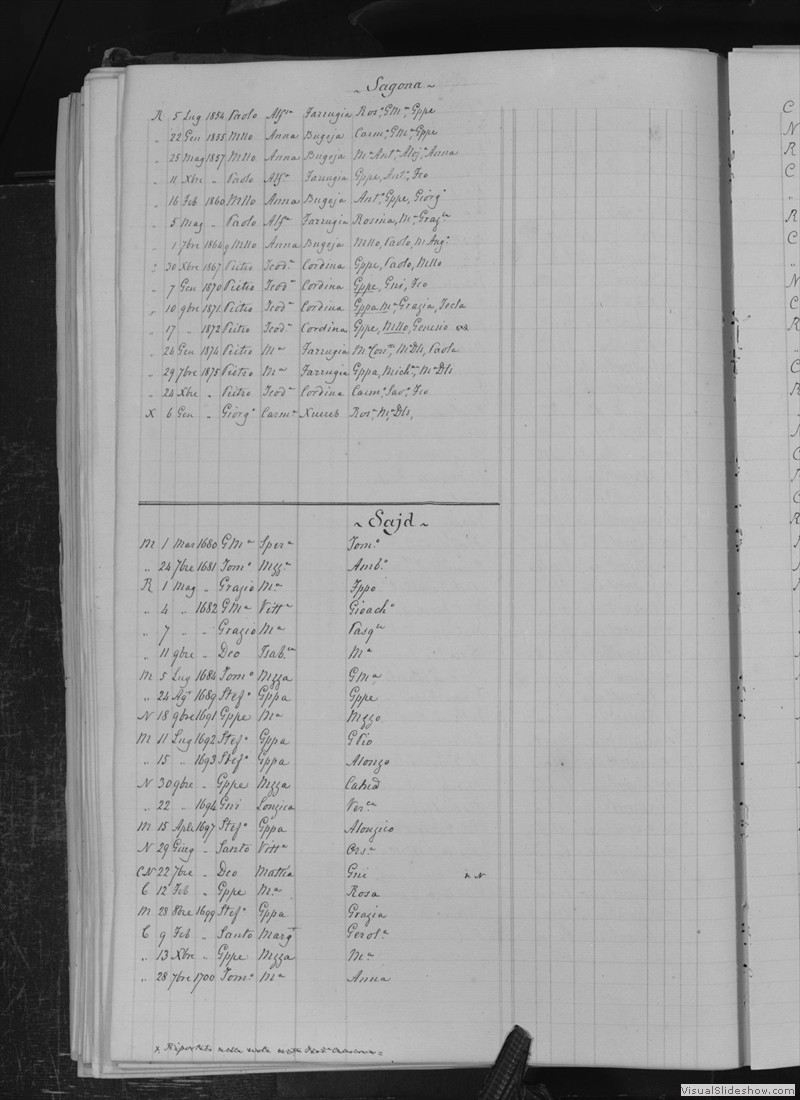 ~ Sagona ~
R 5 Lug 1854 Paolo Alfa Farrugia Rosa, GMa, Gppe
„ 22 Gen 1855 Mllo Anna Bugeja Carmo, GMa, Gppe
„ 25 Mag 1857 Mllo Anna Bugeja Ma Anta, Aloja, Anna
„ 11 Xbre „ Paolo Alfa Farrugia Gppe, Anto, Fco
„ 16 Feb 1860 Mllo Anna Bugeja Anto, Gppe, Giorgo
„ 5 Mag „ Paolo Alfa Farrugia Rosina, Ma, Graza
„ 1 7bre 1864 Mllo Anna Bugeja Mllo, Paolo, M Ango
„ 30 Xbre 1867 Pietro Teoda Cordina Gppe, Paolo, Mllo
„ 7 Gen 1870 Pietro Teoda Cordina Gppe, Gni, Fco
„ 10 9bre 1871 Pietro Teoda Cordina Gppa Ma, Grazia, Tecla
„ 17 „ 1872 Pietro Teoda Cordina Gppe, Mllo, Genesio
„ 24 Gen 1874 Pietro Ma Farrugia Ma Conca, M Dls, Paola
„ 29 7bre 1875 Pietro Ma Farrugia Gppa, Micha, Ma Dls
„ 24 Xbre „ Pietro Teoda Cordina Carmo, Savo, Fco
X 6 Gen „ Giorgo Carma Xuereb Rosa, Ma Dls,
~ Sajd ~
M 1 Mar 1680 GMa Spera Tomo
„ 24 7bre 1681 Tomo Mzza Ambo
R 1 Mag „ Grazio Ma Fppo
„ 4 „ 1682 GMa Vitta Gioacho
„ 7 „ „ Grazio Ma Pasqa
„ 11 9bre „ Dco Isaba Ma
M 5 Lug 1684 Tomo Mzza GMa
„ 24 Ago 1689 Stefo Gppa Gppe
N 18 9bre 1691 Gppe Ma Mzzo
M 11 Lug 1692 Stefo Gppa
„ 15 „ 1693 Stefo Gppa Alonzo
N 30 9bre „ Gppe Mzza Catnd
„ 22 „ 1694 Gni Lonzica Verca
M 15 Aple 1697 Stefo Gppa Alonzico
N 29 Giug „ Santo Vitta Orsa
CN 22 7bre „ Dco Mattia Gni N
C 12 Feb „ Gppe Ma Rosa
M 28 8bre 1699 Stefo Gppa Grazia
C 9 Feb „ Santo Margt Gerola
„ 13 Xbre „ Gppe Mzza Ma
„ 28 7bre 1700 Tomo Ma Anna
x Riportato nella
C
N
R
C
„
R
C
„
N
C
R
VisualSlideshow.com